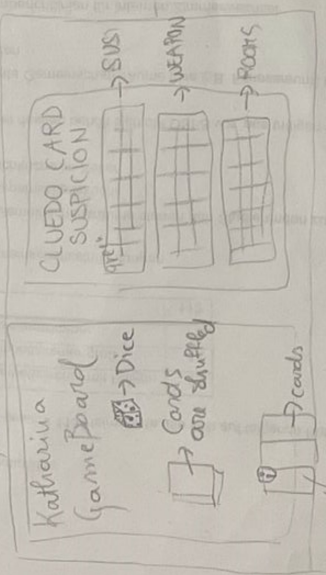 Katharina
GameBoard
→ Dice
→ Cards
are shuffled
→ cards
CLUEDO CARD
SUSPICION
→ SUS
→ WEAPON
→ ROOMS